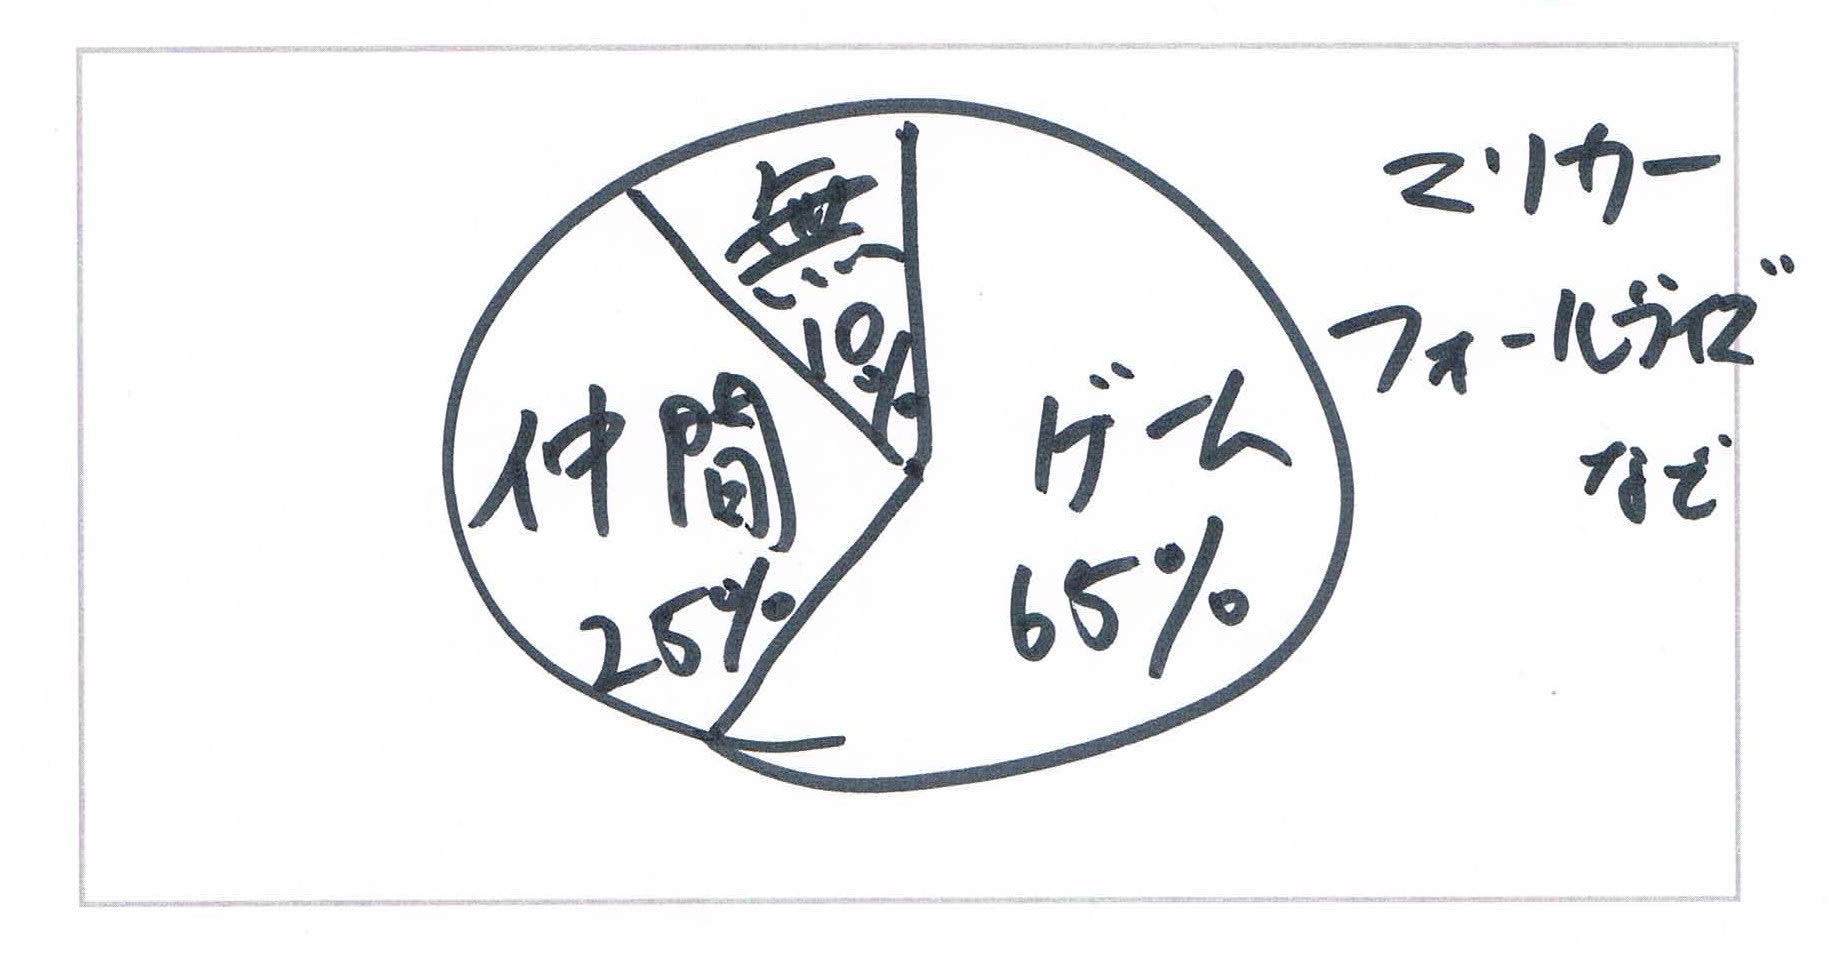 無
10%
仲間
25%
ゲーム
65%
マリカー
フォールガイズ
など